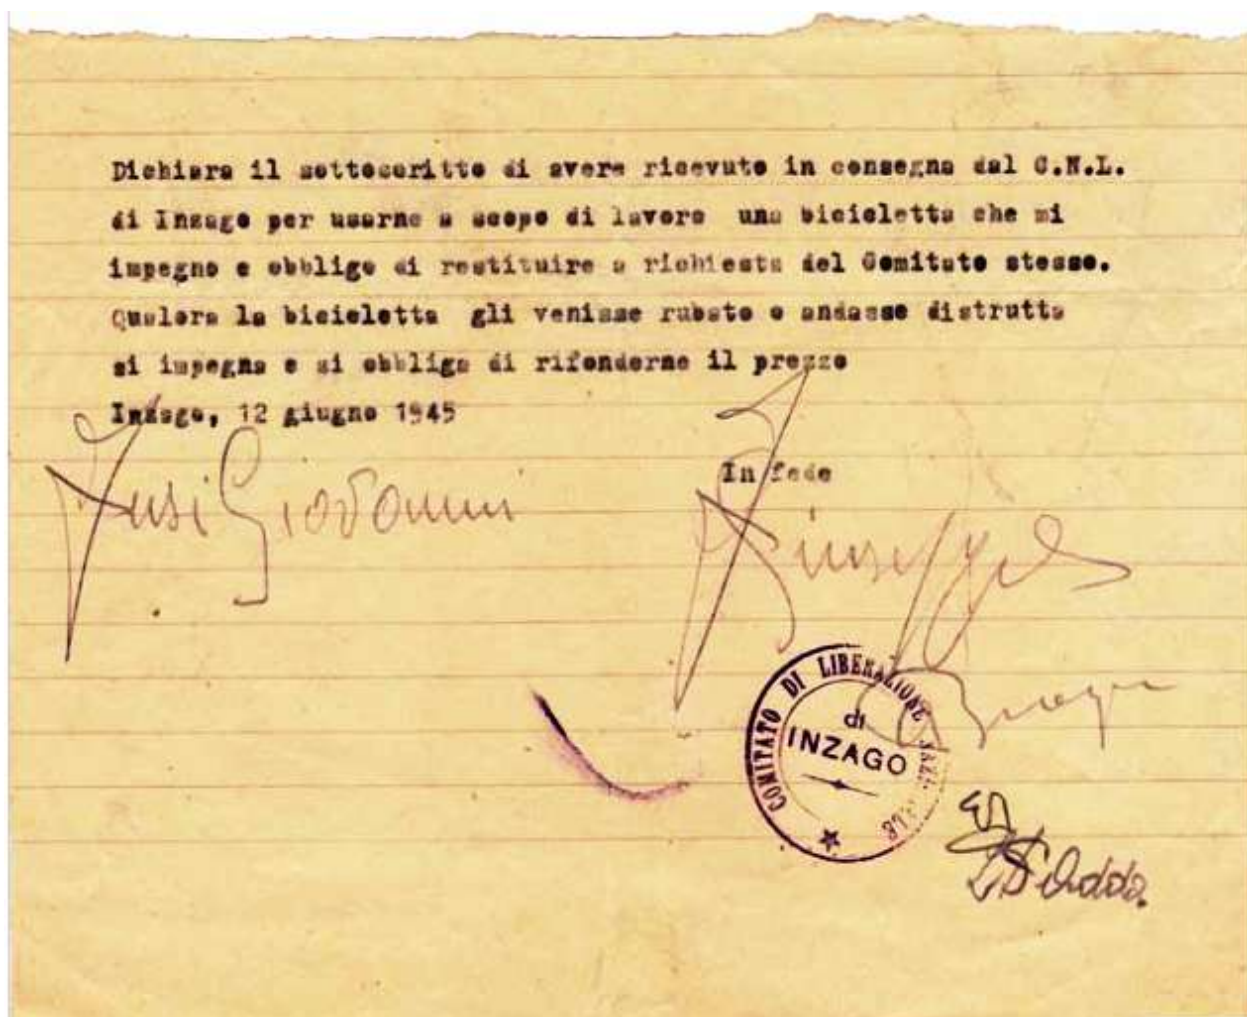 Dichiara il sottoscritto di avere ricevuto in consegna dal C.N.L.
di Inzago per usarne a scopo di lavoro una bicicletta che mi
impegno e obbligo di restituire a richiesta del Comitato stesso.
Qualora la bicicletta gli venisse rubato o andasse distrutta
si impegna e si obbliga di rifonderne il prezzo
Inzago, 12 giugno 1945
In fede
Giovanni
Giuseppe
COMITATO DI LIBERAZIONE NAZIONALE
di
INZAGO